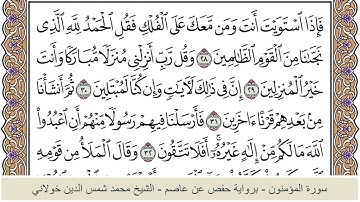 فَإِذَا ٱسْتَوَيْتَ أَنتَ وَمَن مَّعَكَ عَلَى ٱلْفُلْكِ فَقُلِ ٱلْحَمْدُ لِلَّهِ ٱلَّذِى
نَجَّىٰنَا مِنَ ٱلْقَوْمِ ٱلظَّٰلِمِينَ ٢٨ وَقُل رَّبِّ أَنزِلْنِى مُنزَلًا مُّبَارَكًا وَأَنتَ
خَيْرُ ٱلْمُنزِلِينَ ٢٩ إِنَّ فِى ذَٰلِكَ لَءَايَٰتٍ وَإِن كُنَّا لَمُبْتَلِينَ ٣٠ ثُمَّ أَنشَأْنَا
مِنۢ بَعْدِهِمْ قَرْنًا ءَاخَرِينَ ٣١ فَأَرْسَلْنَا فِيهِمْ رَسُولًا مِّنْهُمْ أَنِ ٱعْبُدُوا۟
ٱللَّهَ مَا لَكُم مِّنْ إِلَٰهٍ غَيْرُهُۥٓ أَفَلَا تَتَّقُونَ ٣٢ وَقَالَ ٱلْمَلَأُ مِن قَوْمِهِ
سورة المؤمنون - برواية حفص عن عاصم - الشيخ محمد شمس الدين خولاني